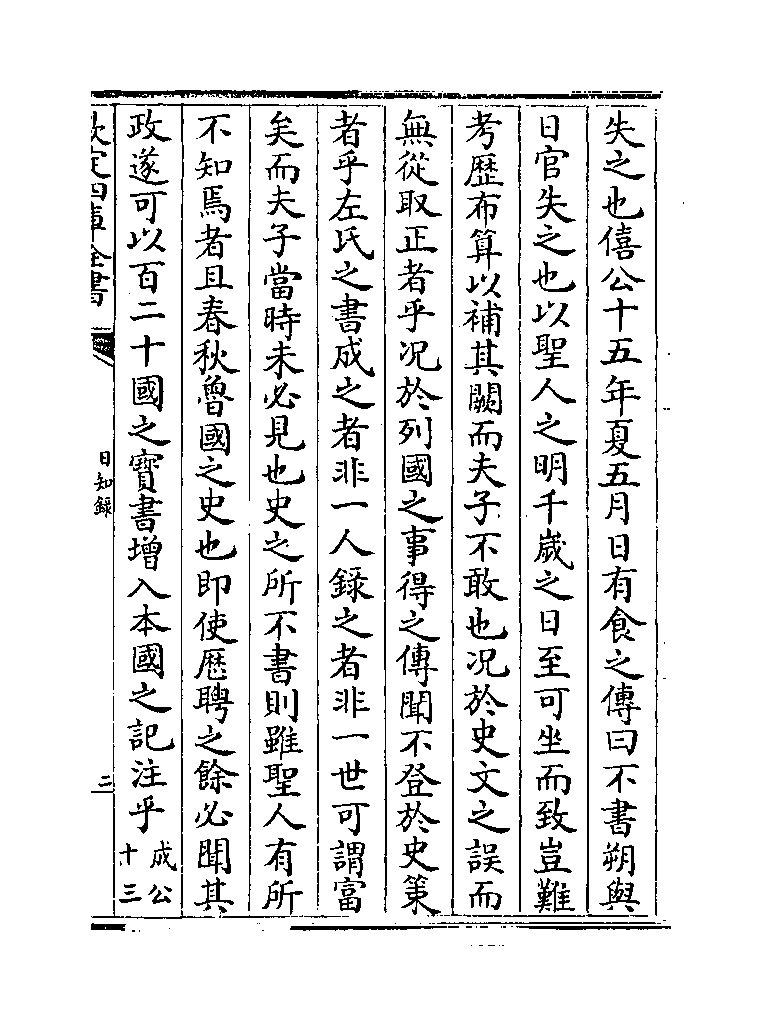 失之也僖公十五年夏五月日有食之傳曰不書朔與
日官失之也以聖人之明千嵗之日至可坐而致豈難
考歴布算以補其闕而夫子不敢也况於史文之誤而
無從取正者乎况於列國之事得之傳聞不登於史策
者乎左氏之書成之者非一人録之者非一世可謂富
矣而夫子當時未必見也史之所不書則雖聖人有所
不知焉者且春秋魯國之史也即使歴聘之餘必聞其
政遂可以百二十國之寳書增入本國之記注乎成公
十三
欽定四庫全書
日知錄
二